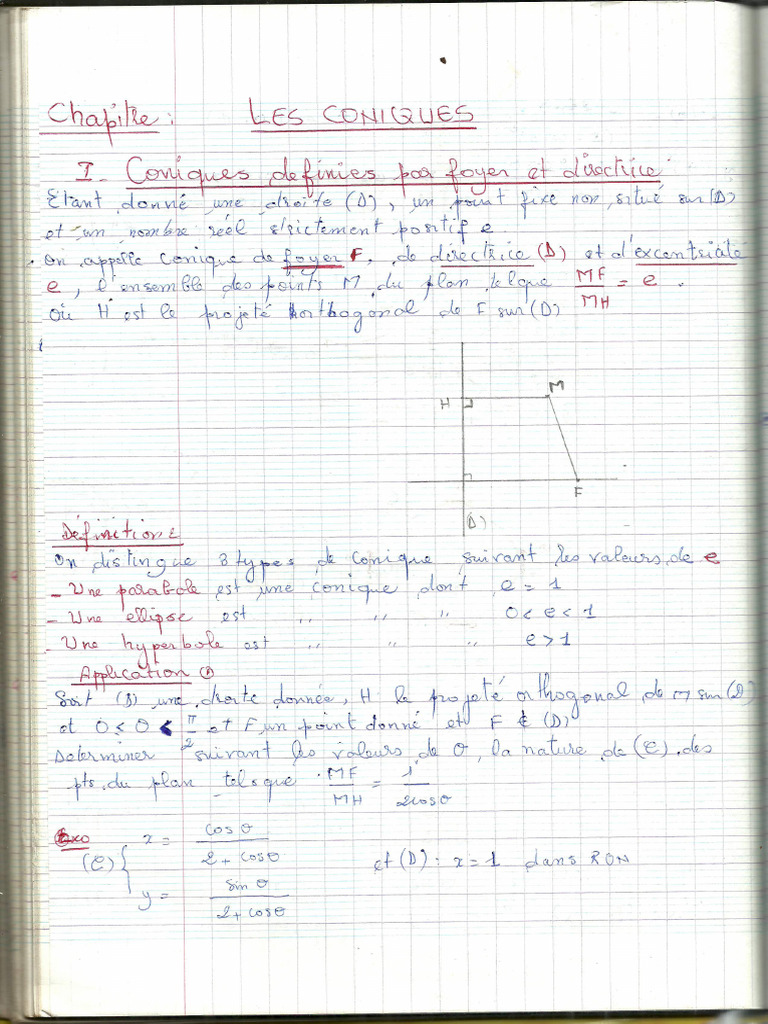 Chapitre : LES CONIQUES
I - Coniques definies par foyer et directrice
Etant donné une droite (D), un point fixe non situé sur (D)
et un nombre réel strictement positif e
. On appelle conique de foyer F, de directrice (D) et d'excentricité
e, l'ensemble des points M du plan tel que MF/MH = e.
Où H est le projeté orthogonal de F sur (D)
H
M
F
(D)
Définition:
On distingue 3 types de conique suivant les valeurs de e
- Une parabole est une conique dont e = 1
- Une ellipse est " " " 0 < e < 1
- Une hyperbole est " " " e > 1
Application ①
Soit (D) une droite donnée, H le projeté orthogonal de M sur (D)
et 0 ≤ θ < π/2 et F un point donné et F ∉ (D)
Determiner suivant les valeurs de θ, la nature de (C) des
pts du plan tels que MF/MH = 1/2cosθ
Exo
(C) { x = cosθ / 2 + cosθ et (D) : x = 1 dans RON
y = sinθ / 2 + cosθ